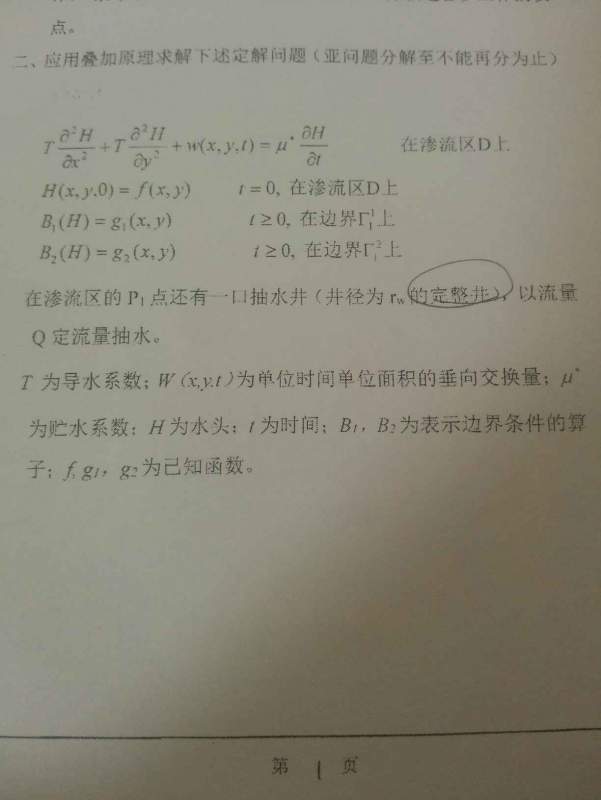 点。
二、应用叠加原理求解下述定解问题（亚问题分解至不能再分为止）
T ∂²H/∂x² + T ∂²H/∂y² + w(x, y, t) = μ* ∂H/∂t 在渗流区D上
H(x, y,0) = f(x, y) t = 0, 在渗流区D上
B₁(H) = g₁(x, y) t ≥ 0, 在边界Γ₁¹上
B₂(H) = g₂(x, y) t ≥ 0, 在边界Γ₁²上
在渗流区的 P₁ 点还有一口抽水井（井径为 rw 的完整井），以流量
Q 定流量抽水。
T 为导水系数；W (x,y,t)为单位时间单位面积的垂向交换量；μ*
为贮水系数；H 为水头；t 为时间；B₁，B₂为表示边界条件的算
子；f, g₁，g₂为已知函数。
第 1 页